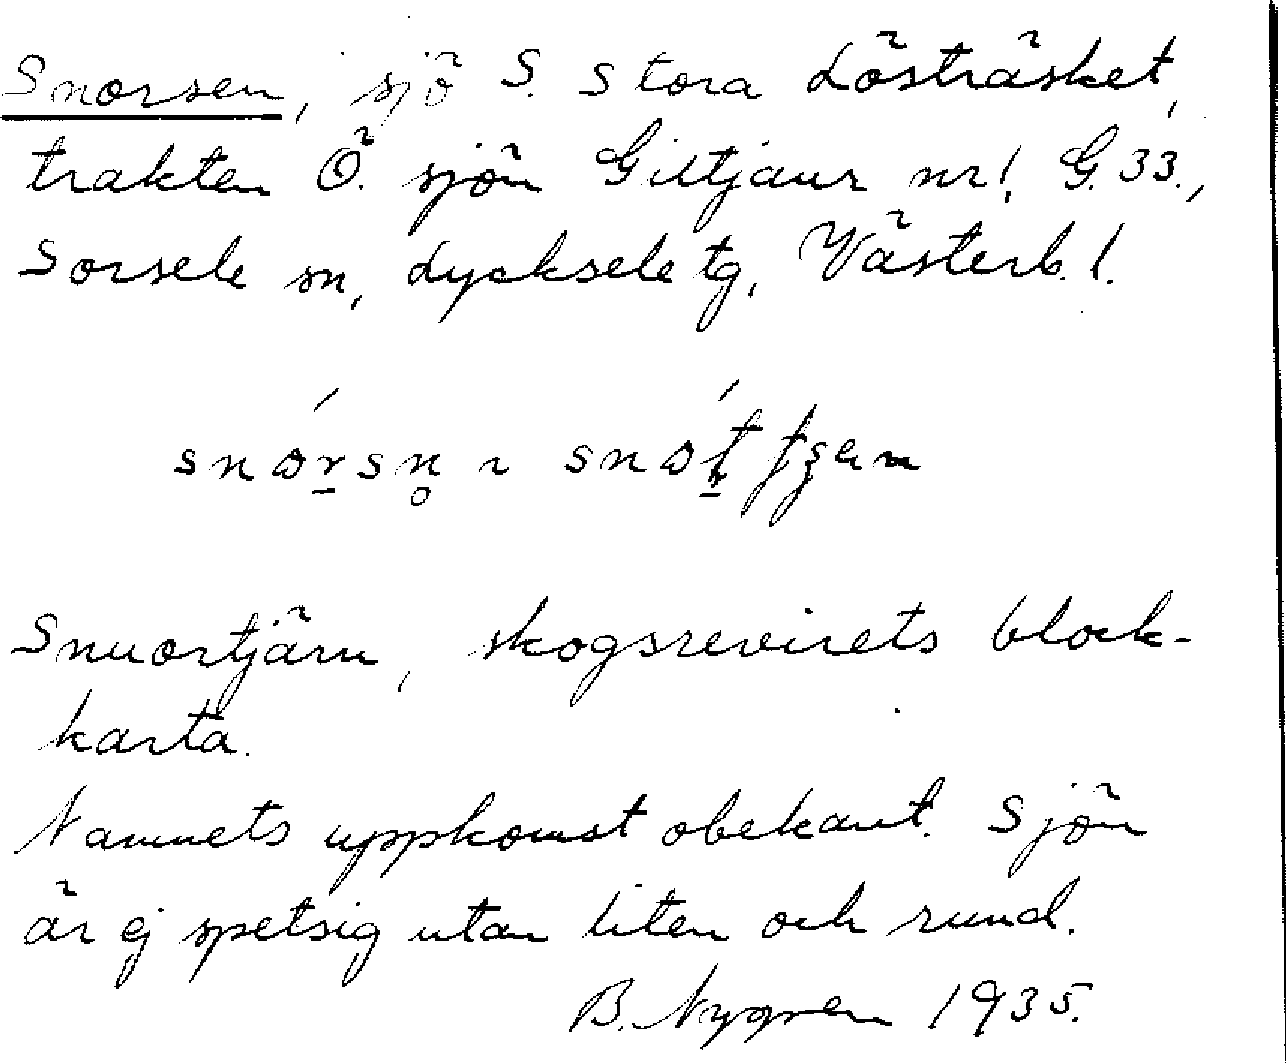 Snorsen, sjö S. Stora Lösträsket,
trakten Ö. sjön Giltjaur nr 1, G. 33.,
Sorsele sn, Lycksele tg, Västerb. l.
Snuortjärn, skogsrevirets block-
karta.
Namnets uppkomst obekant. Sjön
är ej spetsig utan liten och rund.
B. Nygren 1935.